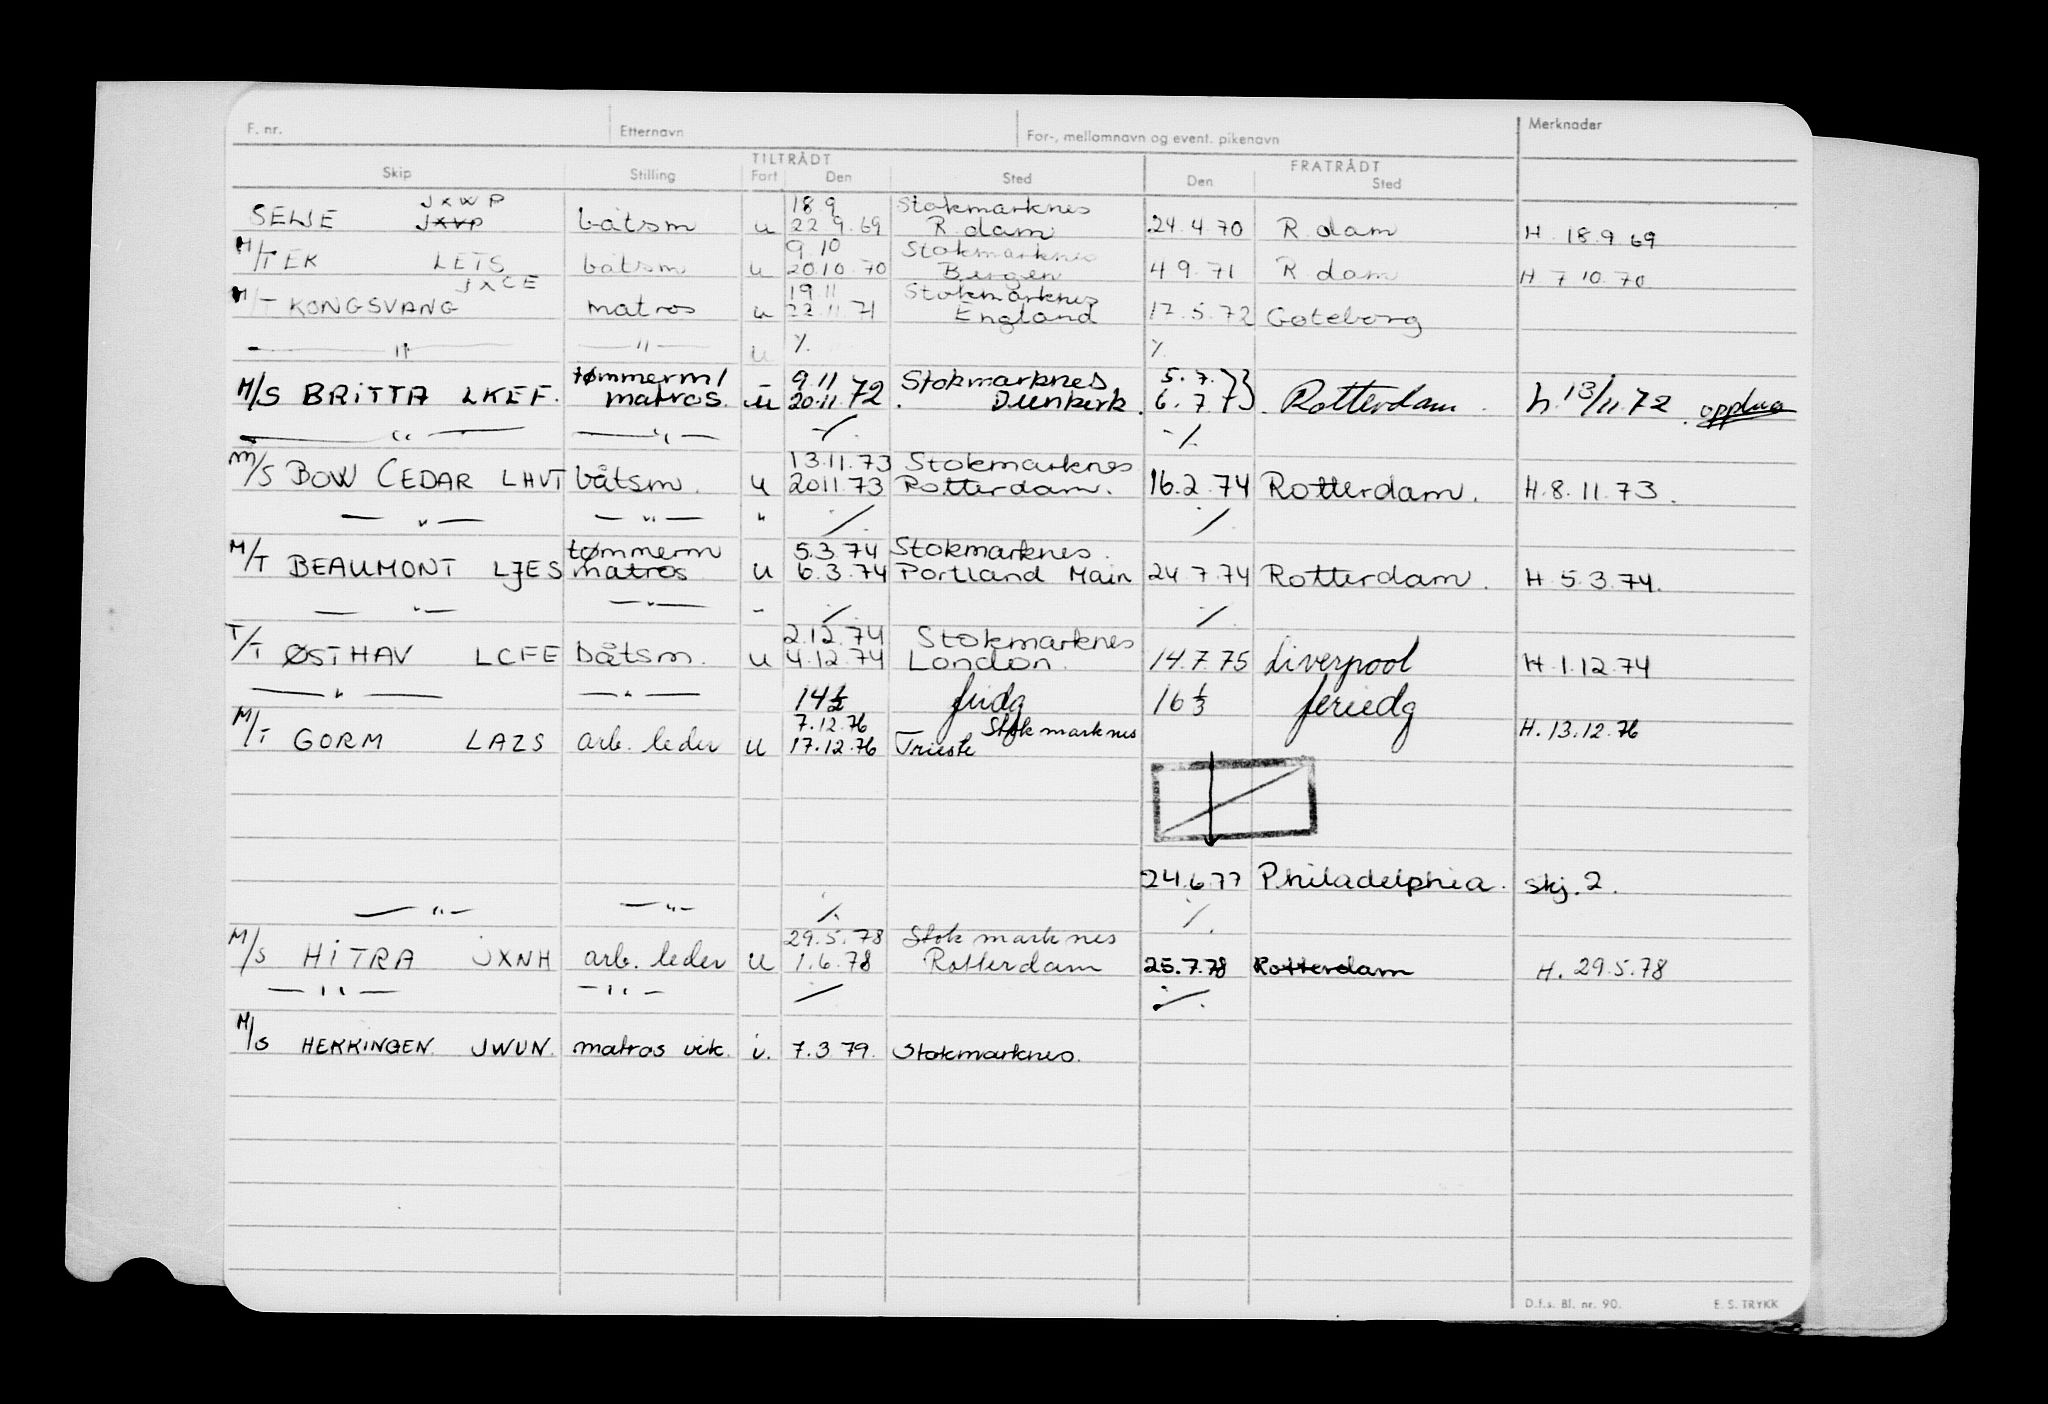 F. nr. Etternavn For-, mellomnavn og event. pikenavn Merknader
TILTRÅDT FRATRÅDT
Skip Stilling Fart Den Sted Den Sted
JXWP 18 9 Stokmarknes
SELJE JXVP båtsm u 22 9. 69 R. dam 24. 4. 70 R. dam H. 18. 9 69
9 10 Stokmarknes
M/T EK LETS båtsm u 20. 10. 70 Bergen 4 9. 71 R dam H 7 10. 70
JXCE 19. 11 Stokmarknes
M/T KONGSVANG matros u 22. 11. 71 England 17. 5. 72 Gøteborg
— " — — " — u ⁒ ⁒
tømmerm/ 9. 11 Stokmarknes 5. 7.
M/S BRITTA LKEF. matros. u 20. 11 72 Dunkirk. 6. 7 73. Rotterdam. h. 13/11. 72
— " — — " — ⁒ ⁒
13. 11. 73 Stokmarknes
M/S BOW CEDAR LHVT båtsm. u 20 11. 73 Rotterdam. 16. 2. 74 Rotterdam. H. 8. 11. 73.
— " — — " — " ⁒ ⁒
tømmerm 5. 3. 74 Stokmarknes.
M/T BEAUMONT LJES matros u 6. 3. 74 Portland Main 24. 7. 74 Rotterdam. H. 5. 3. 74.
— " — — " — - ⁒ ⁒
2. 12. 74 Stokmarknes
T/T ØSTHAV LCFE båtsm. u 4. 12. 74 London. 14. 7. 75 Liverpool H. 1. 12. 74
— " — — " — 14 ½ fridg 16 ⅓ feriedg
7. 12. 76 Stokmarknes
M/T GORM LAZS arb. leder u 17. 12. 76 Trieste H. 13. 12. 76
24. 6. 77 Philadelphia. skj. 2.
— " — — " — ⁒ ⁒
29. 5. 78 Stokmarknes
M/S HITRA JXNH arb. leder u 1. 6. 78 Rotterdam 25. 7. 78 Rotterdam H. 29. 5. 78
— " — — " — ⁒ ⁒
M/S HEKKINGEN. JWUN. matros vik. i. 7. 3 79. Stokmarknes.
D.f.s. Bl. nr. 90. E. S. TRYKK